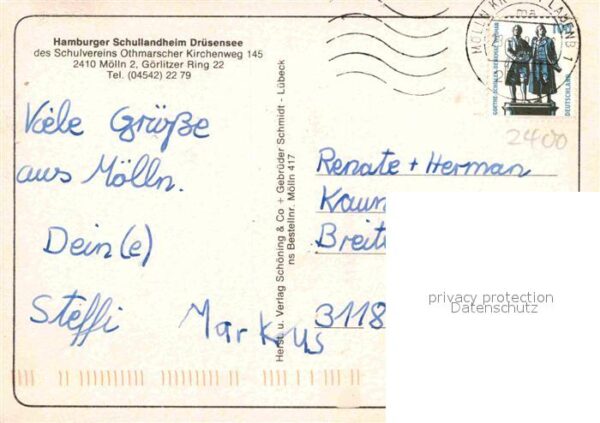 Hamburger Schullandheim Drüsensee
des Schulvereins Othmarscher Kirchenweg 145
2410 Mölln 2, Görlitzer Ring 22
Tel. (04542) 22 79
Viele Grüße
aus Mölln.
Dein(e)
Steffi
Markus
Herst. u. Verlag Schöning & Co + Gebrüder Schmidt - Lübeck
ns Bestellnr. Mölln 417
MÖLLN
100
GOETHE-SCHILLER-DENKMAL
DEUTSCHLAND
2400
Renate + Herman
Kaun
Breit
3118
privacy protection
Datenschutz